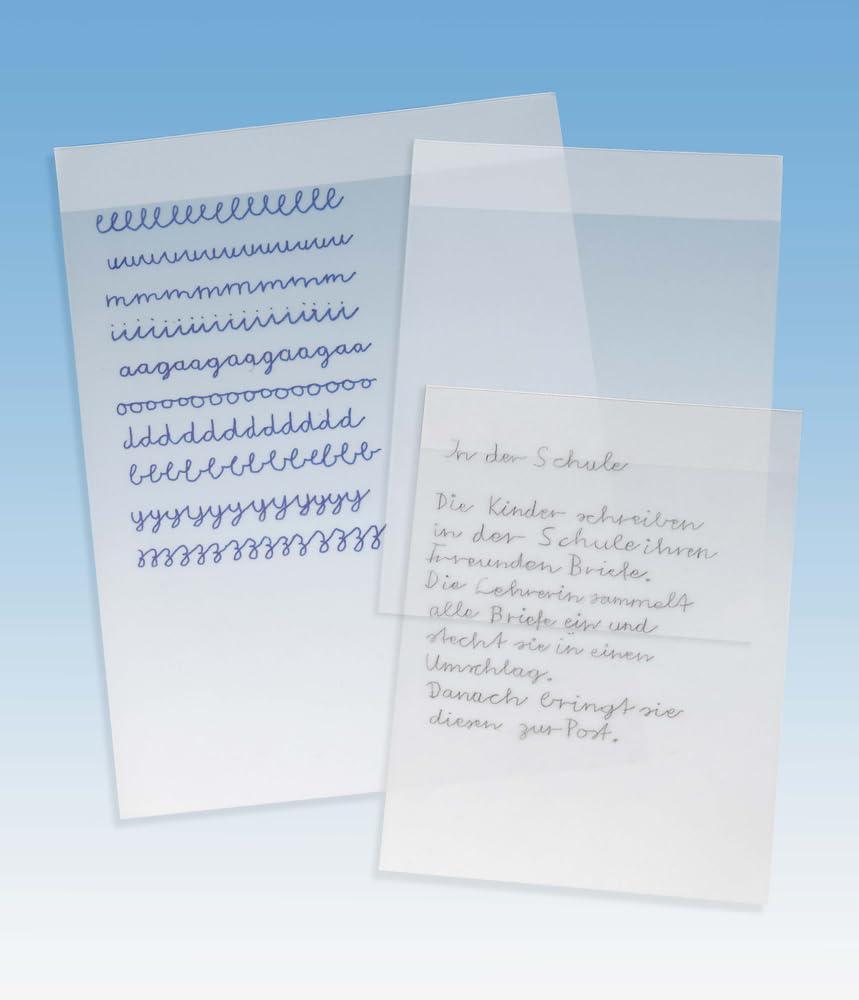 eeeeeeeeeeeeeeeee
uuuuuuuuuuuu
mmmmmmmmm
iiiiiiiiiiiiiiiii
aagaagaagaagaa
ooooooooooooooooo
dddddddddddd
bbbbbbbbbbbbb
yyyyyyyyyyyyy
zzzzzzzzzzzzzz
In der Schule
Die Kinder schreiben
in der Schule ihren
Freunden Briefe.
Die Lehrerin sammelt
alle Briefe ein und
stecht sie in einen
Umschlag.
Danach bringt sie
diesen zur Post.